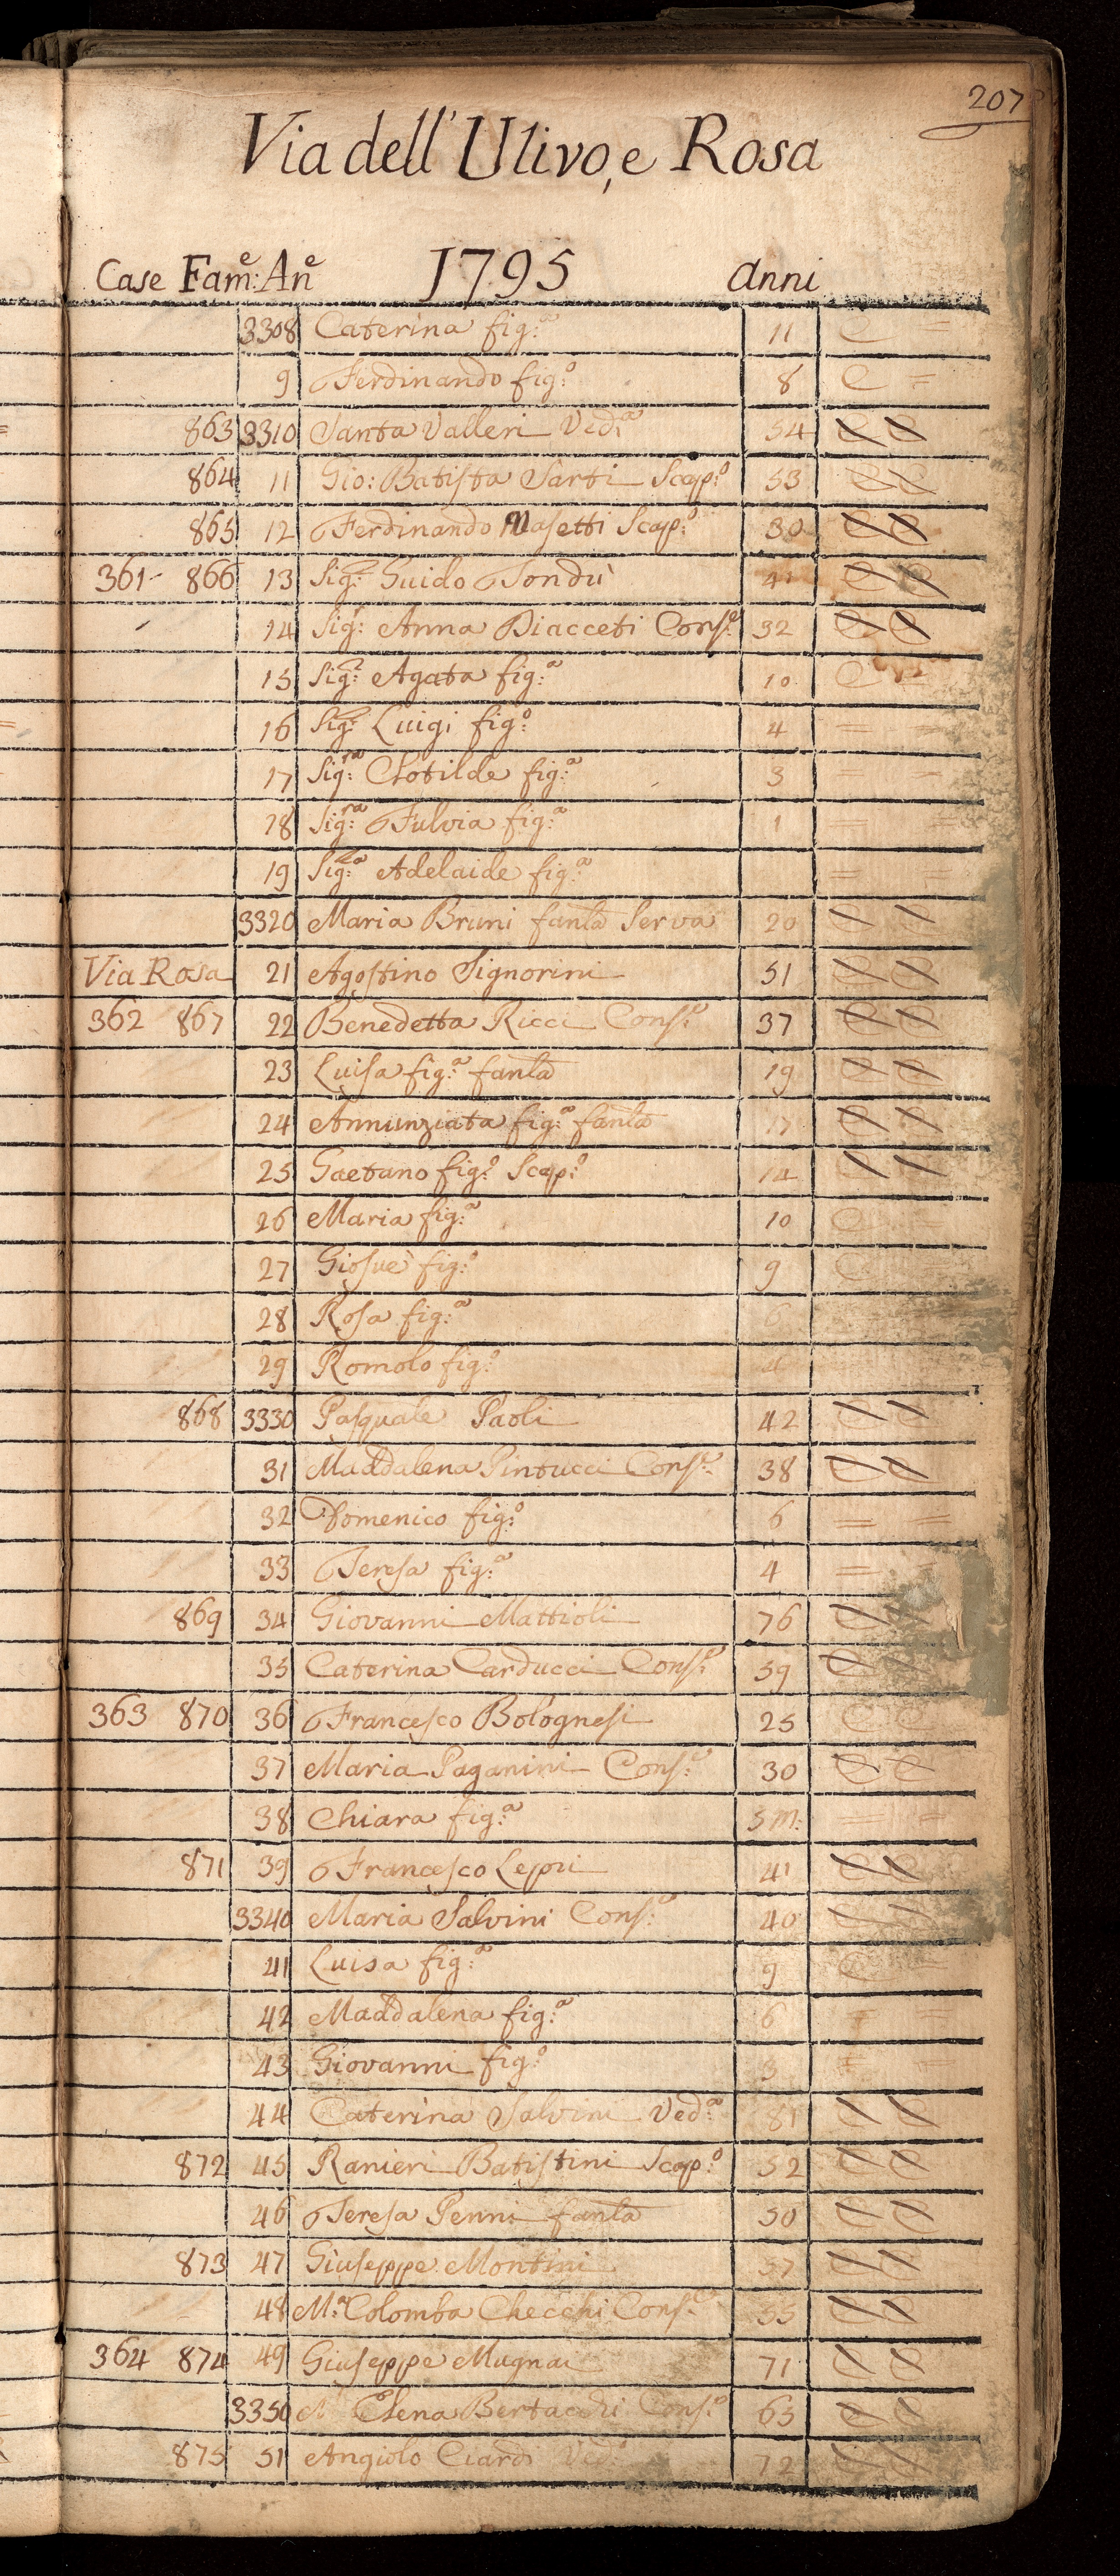 207
Via dell' Ulivo, e Rosa
Case Fam:e An:e 1795 anni
3308 Caterina fig:a 11 C =
9 Ferdinando fig:o 8 C =
863 3310 Santa Valleri Ved:a 54 C C
864 11 Gio: Batista Sarti Scap:o 53 C C
865 12 Ferdinando Masetti Scap:o 30 C C
361 866 13 Sig:r Guido 41 C C
14 Sig:ra Anna Diacceti Cons:e 32 C C
15 Sig:ra Agata fig:a 10 C =
16 Sig:r Luigi fig:o 4 = =
17 Sig:ra Clotilde fig:a 3 = =
18 Sig:ra Fulvia fig:a 1 = =
19 Sig:ra Adelaide fig:a = =
3320 Maria Bruni fanla Serva 20 C C
Via Rosa 21 Agostino Signorini 51 C C
362 867 22 Benedetta Ricci Cons:e 37 C C
23 Luisa fig:a fanla 19 C C
24 Annunziata fig:a fanla 17 C C
25 Gaetano fig:o Scap:o 14 C C
26 Maria fig:a 10 C =
27 Giosuè fig:o 9 C
28 Rosa fig:a 6
29 Romolo fig:o 4
868 3330 Pasquale Paoli 42 C C
31 Maddalena Pintucci Cons:e 38 C C
32 Domenico fig:o 6 = =
33 Teresa fig:a 4 =
869 34 Giovanni Mattioli 76 C C
35 Caterina Carducci Cons:e 59 C C
363 870 36 Francesco Bolognesi 25 C C
37 Maria Paganini Cons:e 30 C C
38 Chiara fig:a 5 m: = =
871 39 Francesco Lepri 41 C C
3340 Maria Salvini Cons:e 40 C C
41 Luisa fig:a 9 C =
42 Maddalena fig:a 6 = =
43 Giovanni fig:o 3 = =
44 Caterina Salvini Ved:a 81 C C
872 45 Ranieri Batistini Scap:o 52 C C
46 Teresa Penni fanla 50 C C
873 47 Giuseppe Montini 57 C C
48 M:a Colomba Checchi Cons:e 55 C C
364 874 49 Giuseppe Mugnai 71 C C
3350 M:a Elena Bertacchi Cons:e 65 C C
875 51 Angiolo Ciardi Ved:o 72 C C